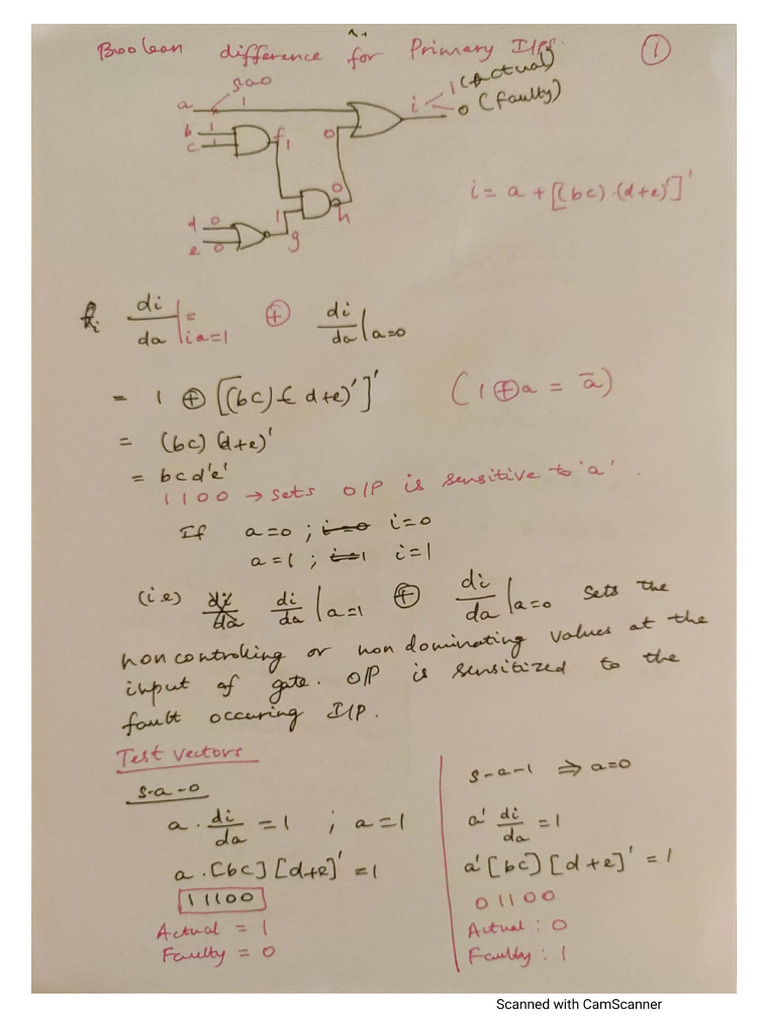 Boolean difference for Primary I/Ps. 1
s-a-0
a 1 i 1 (actual)
0 (faulty)
b 1
c 1 f 1 0
0
h
d 0 1
e 0 g
i = a + [(bc) . (d+e)']'
di/da | i a=1 = ⊕ di/da | a=0
= 1 ⊕ [(bc) (d+e)']' (1 ⊕ a = ā)
= (bc) (d+e)'
= bcd'e'
1100 → sets O/P is sensitive to 'a'.
If a=0 ; i=0 i=0
a=1 ; i=1 i=1
(i.e) di/da di/da | a=1 ⊕ di/da | a=0 sets the
noncontrolling or non dominating values at the
input of gate. O/P is sensitized to the
fault occuring I/P.
Test vectors
s-a-0
a . di/da = 1 ; a=1
a . [bc] [d+e]' = 1
11100
Actual = 1
Faulty = 0
s-a-1 ⇒ a=0
a' di/da = 1
a' [bc] [d+e]' = 1
01100
Actual : 0
Faulty : 1
Scanned with CamScanner